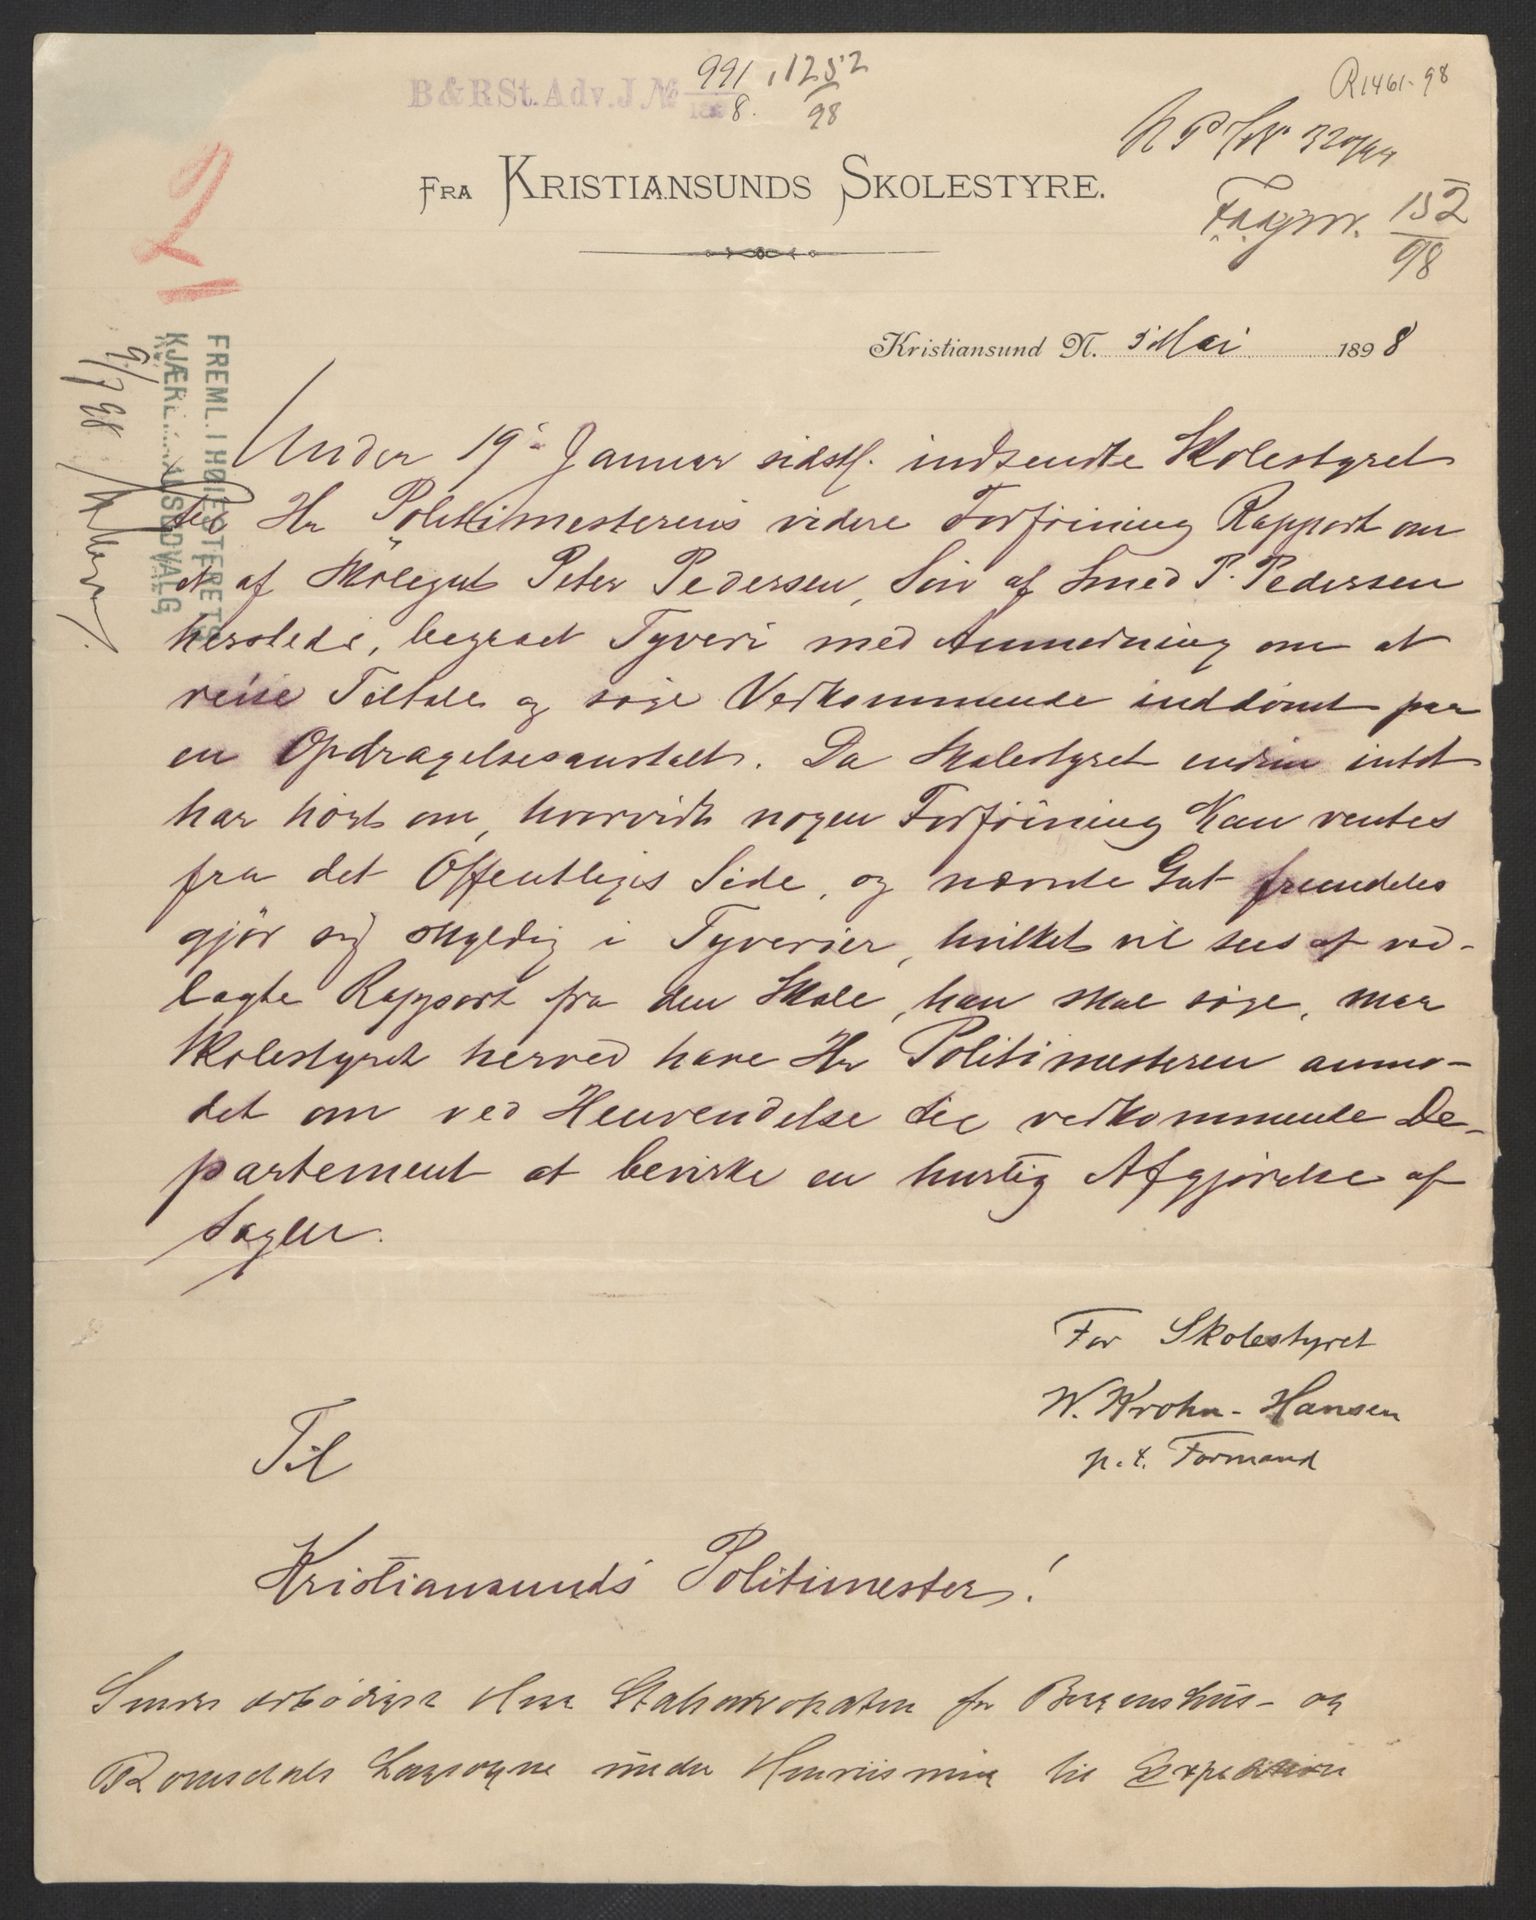 B & R St. Adv. J. № 991/1898. , 1252/98
R 1461-98
320/94
152/98
2
FRA KRISTIANSUNDS SKOLESTYRE.
Kristiansund N. 5 Mai 1898
FREML. I HØIESTERETS
KJÆREMAALSUDVALG
9/7 98
Under 19de Januar sidstl. indsendte Skolestyret
til Hr Politimesterens videre Forføining Rapport om
et af Skolegut Peter Pedersen, Søn af Smed P. Pedersen
hersteds, begaaet Tyveri med Anmodning om at
reise Tiltale og søge Vedkommende inddømt paa
en Opdragelsesanstalt. Da Skolestyret endnu intet
har hørt om, hvorvidt nogen Forføining kan ventes
fra det Offentliges Side, og nævnte Gut fremdeles
gjør sig skyldig i Tyverier, hvilket vil sees af ved-
lagte Rapport fra den Skole, han skal søge, maa
Skolestyret herved have Hr Politimesteren anmo-
det om ved Henvendelse til vedkommende De-
partement at bevirke en hurtig Afgjørelse af
Sagen.
For Skolestyret
W. Krohn-Hansen
p.t. Formand
Til
Kristiansunds Politimester!
Sendes ærbødigst Herr Statsadvokaten for Bergenshus- og
Romsdals Lagsogne under Henvisning til Expedition